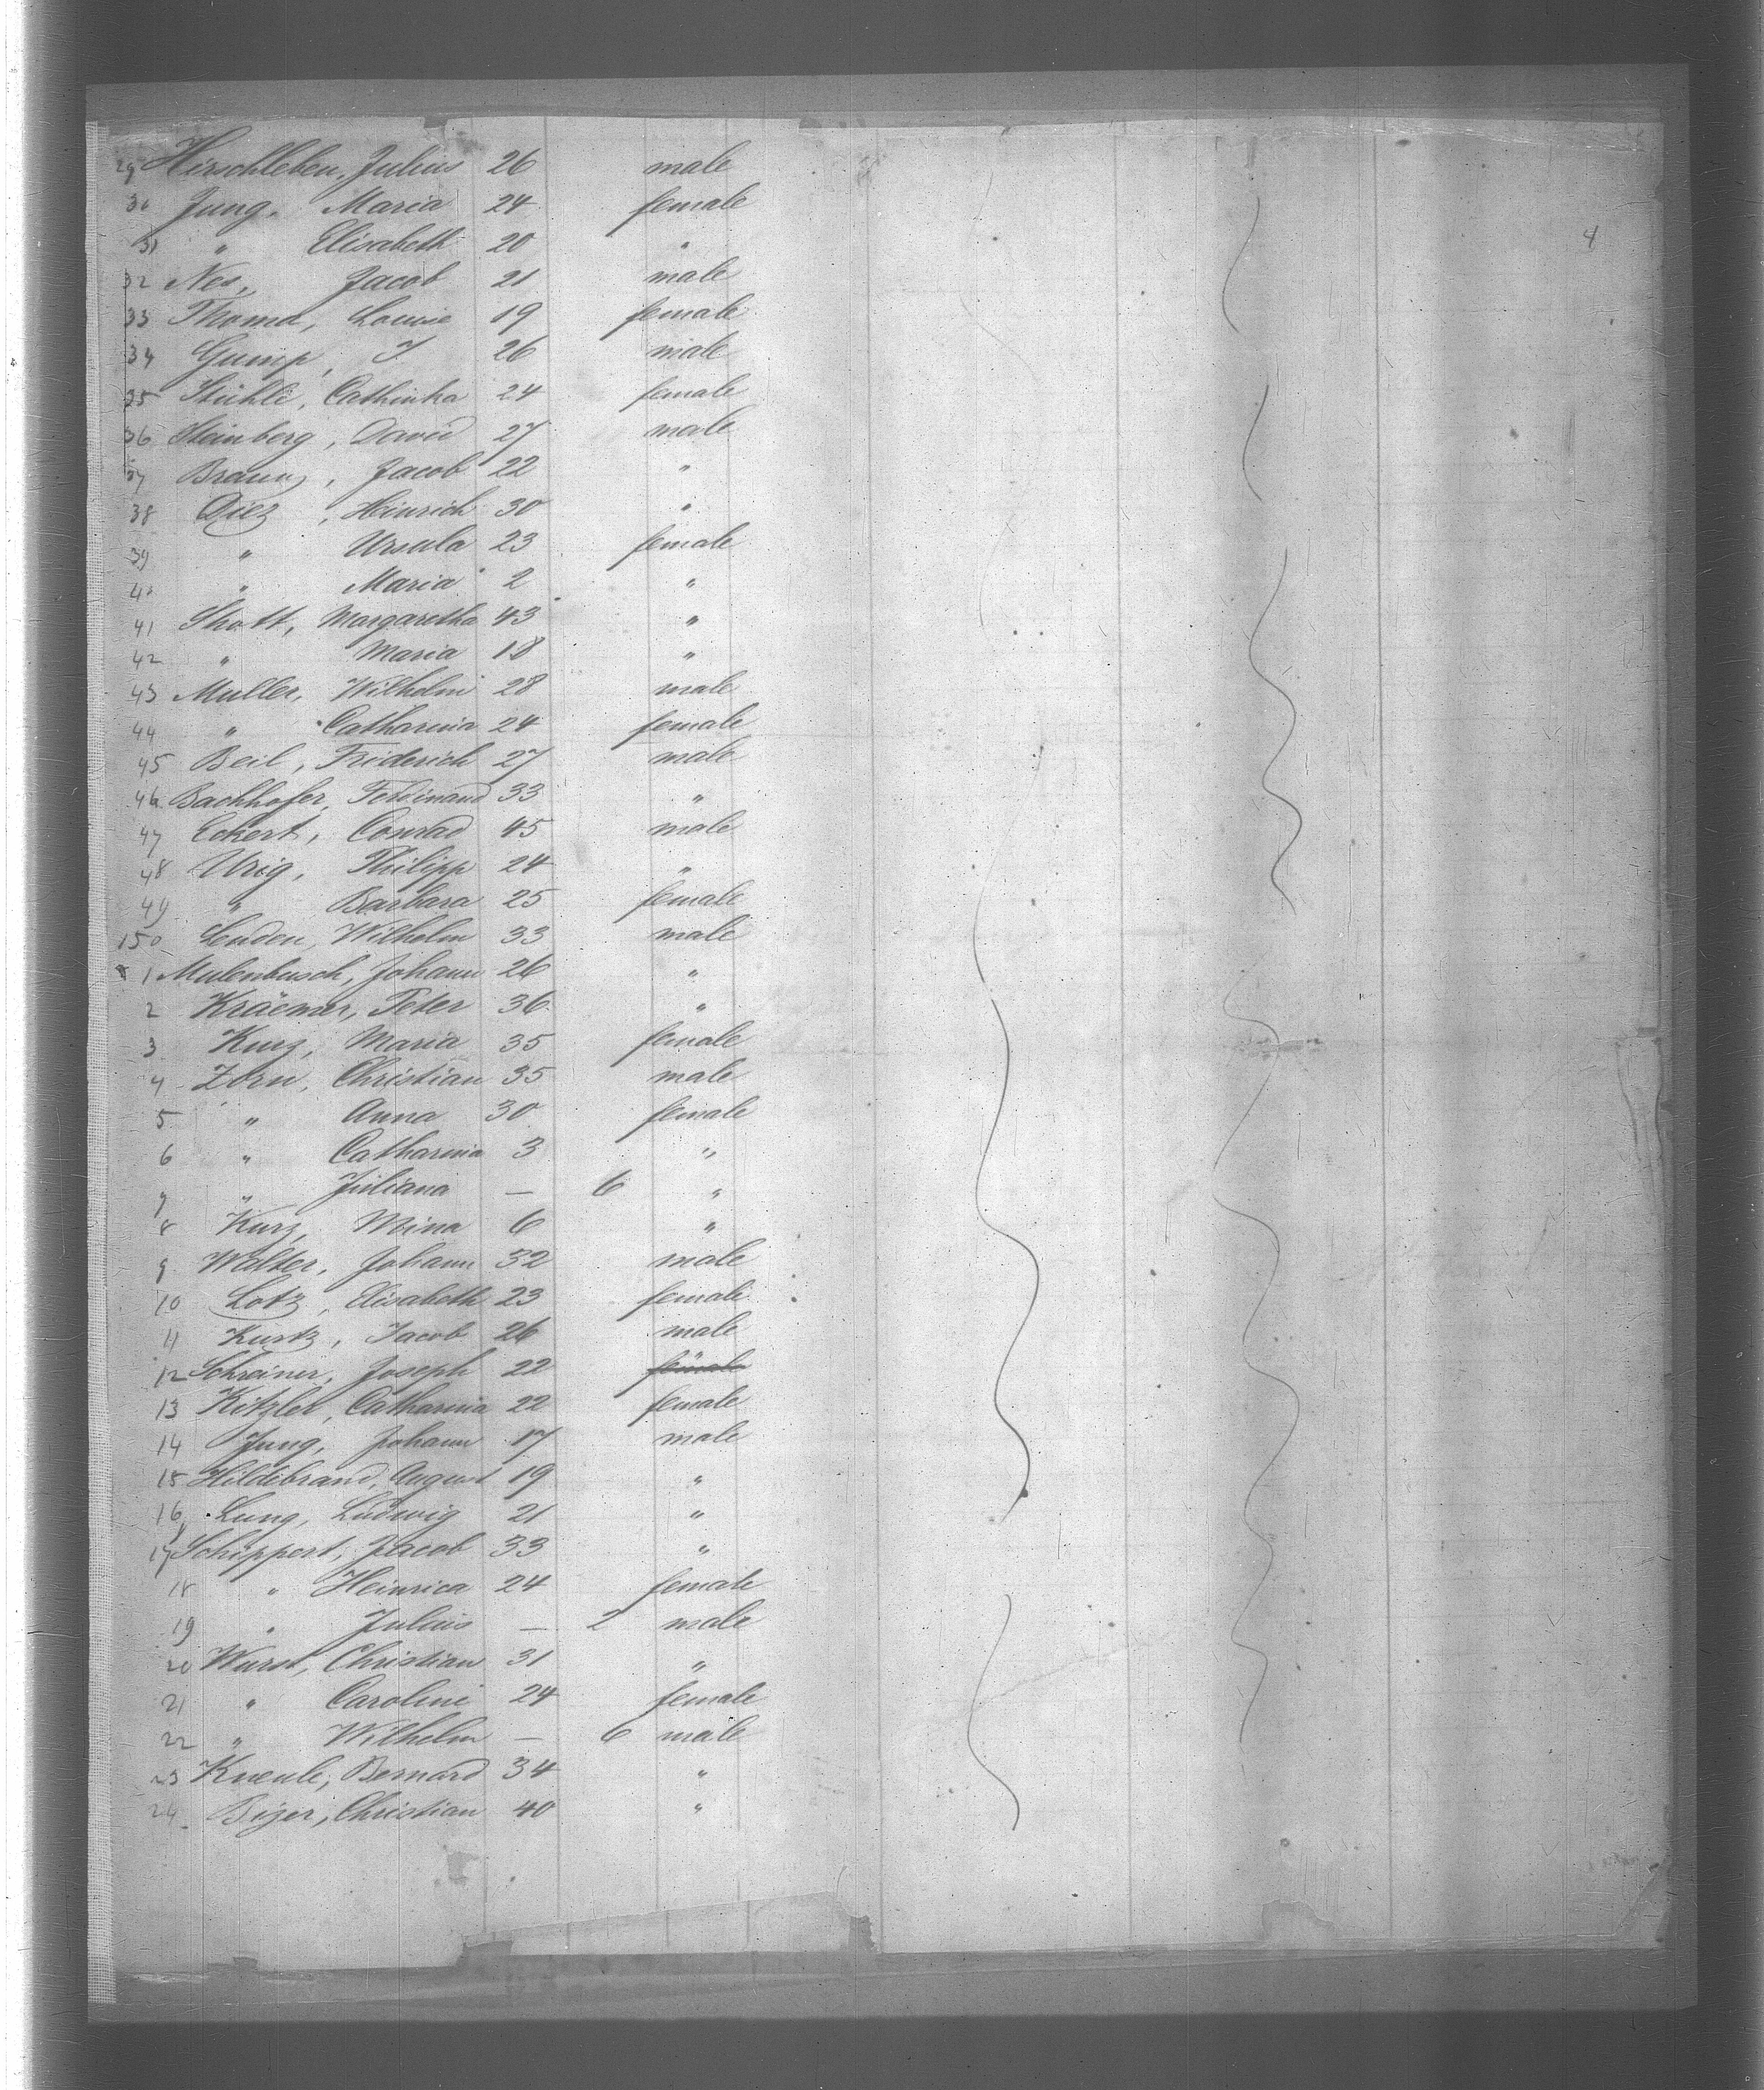 29 Hirschleben, Julius 26 male
30 Jung, Maria 24 female
31 " Elisabeth 20 "
32 Nes, Jacob 21 male
33 Thoma, Louise 19 female
34 Gump, J 26 male
35 Stuhli, Cathinka 24 female
36 Steinberg, David 27 male
37 Braun, Jacob 22 "
38 Diez, Heinrich 30 "
39 " Ursula 23 female
40 " Maria 2 "
41 Shott, Margaretha 43 "
42 " Maria 18 "
43 Muller, Wilhelm 28 male
44 " Catharina 24 female
45 Beil, Friderich 27 male
46 Bachhofer, Ferdinand 33 "
47 Eckert, Conrad 45 male
48 Urig, Philipp 24 "
49 " Barbara 25 female
150 Lendon, Wilhelm 33 male
1 Mulenbusch, Johann 26 "
2 Kräemer, Peter 36 "
3 Kurz, Maria 35 female
4 Zorn, Christian 35 male
5 " Anna 30 female
6 " Catharina 3 "
7 " Juliana — 6 "
8 Kurz, Mina 6 "
9 Walter, Johann 32 male
10 Lotz, Elisabeth 23 female
11 Kurtz, Jacob 26 male
12 Schreiner, Joseph 22 female
13 Kitzler, Catharina 22 female
14 Jung, Johann 17 male
15 Hildebrand, August 19 "
16 Lung, Ludwig 21 "
17 Schippert, Jacob 33 "
18 " Heinrica 24 female
19 " Julius — 2 male
20 Wurst, Christian 31 "
21 " Caroline 24 female
22 " Wilhelm — 6 male
23 Kneule, Bernard 34 "
24 Bizer, Christian 40 "
4